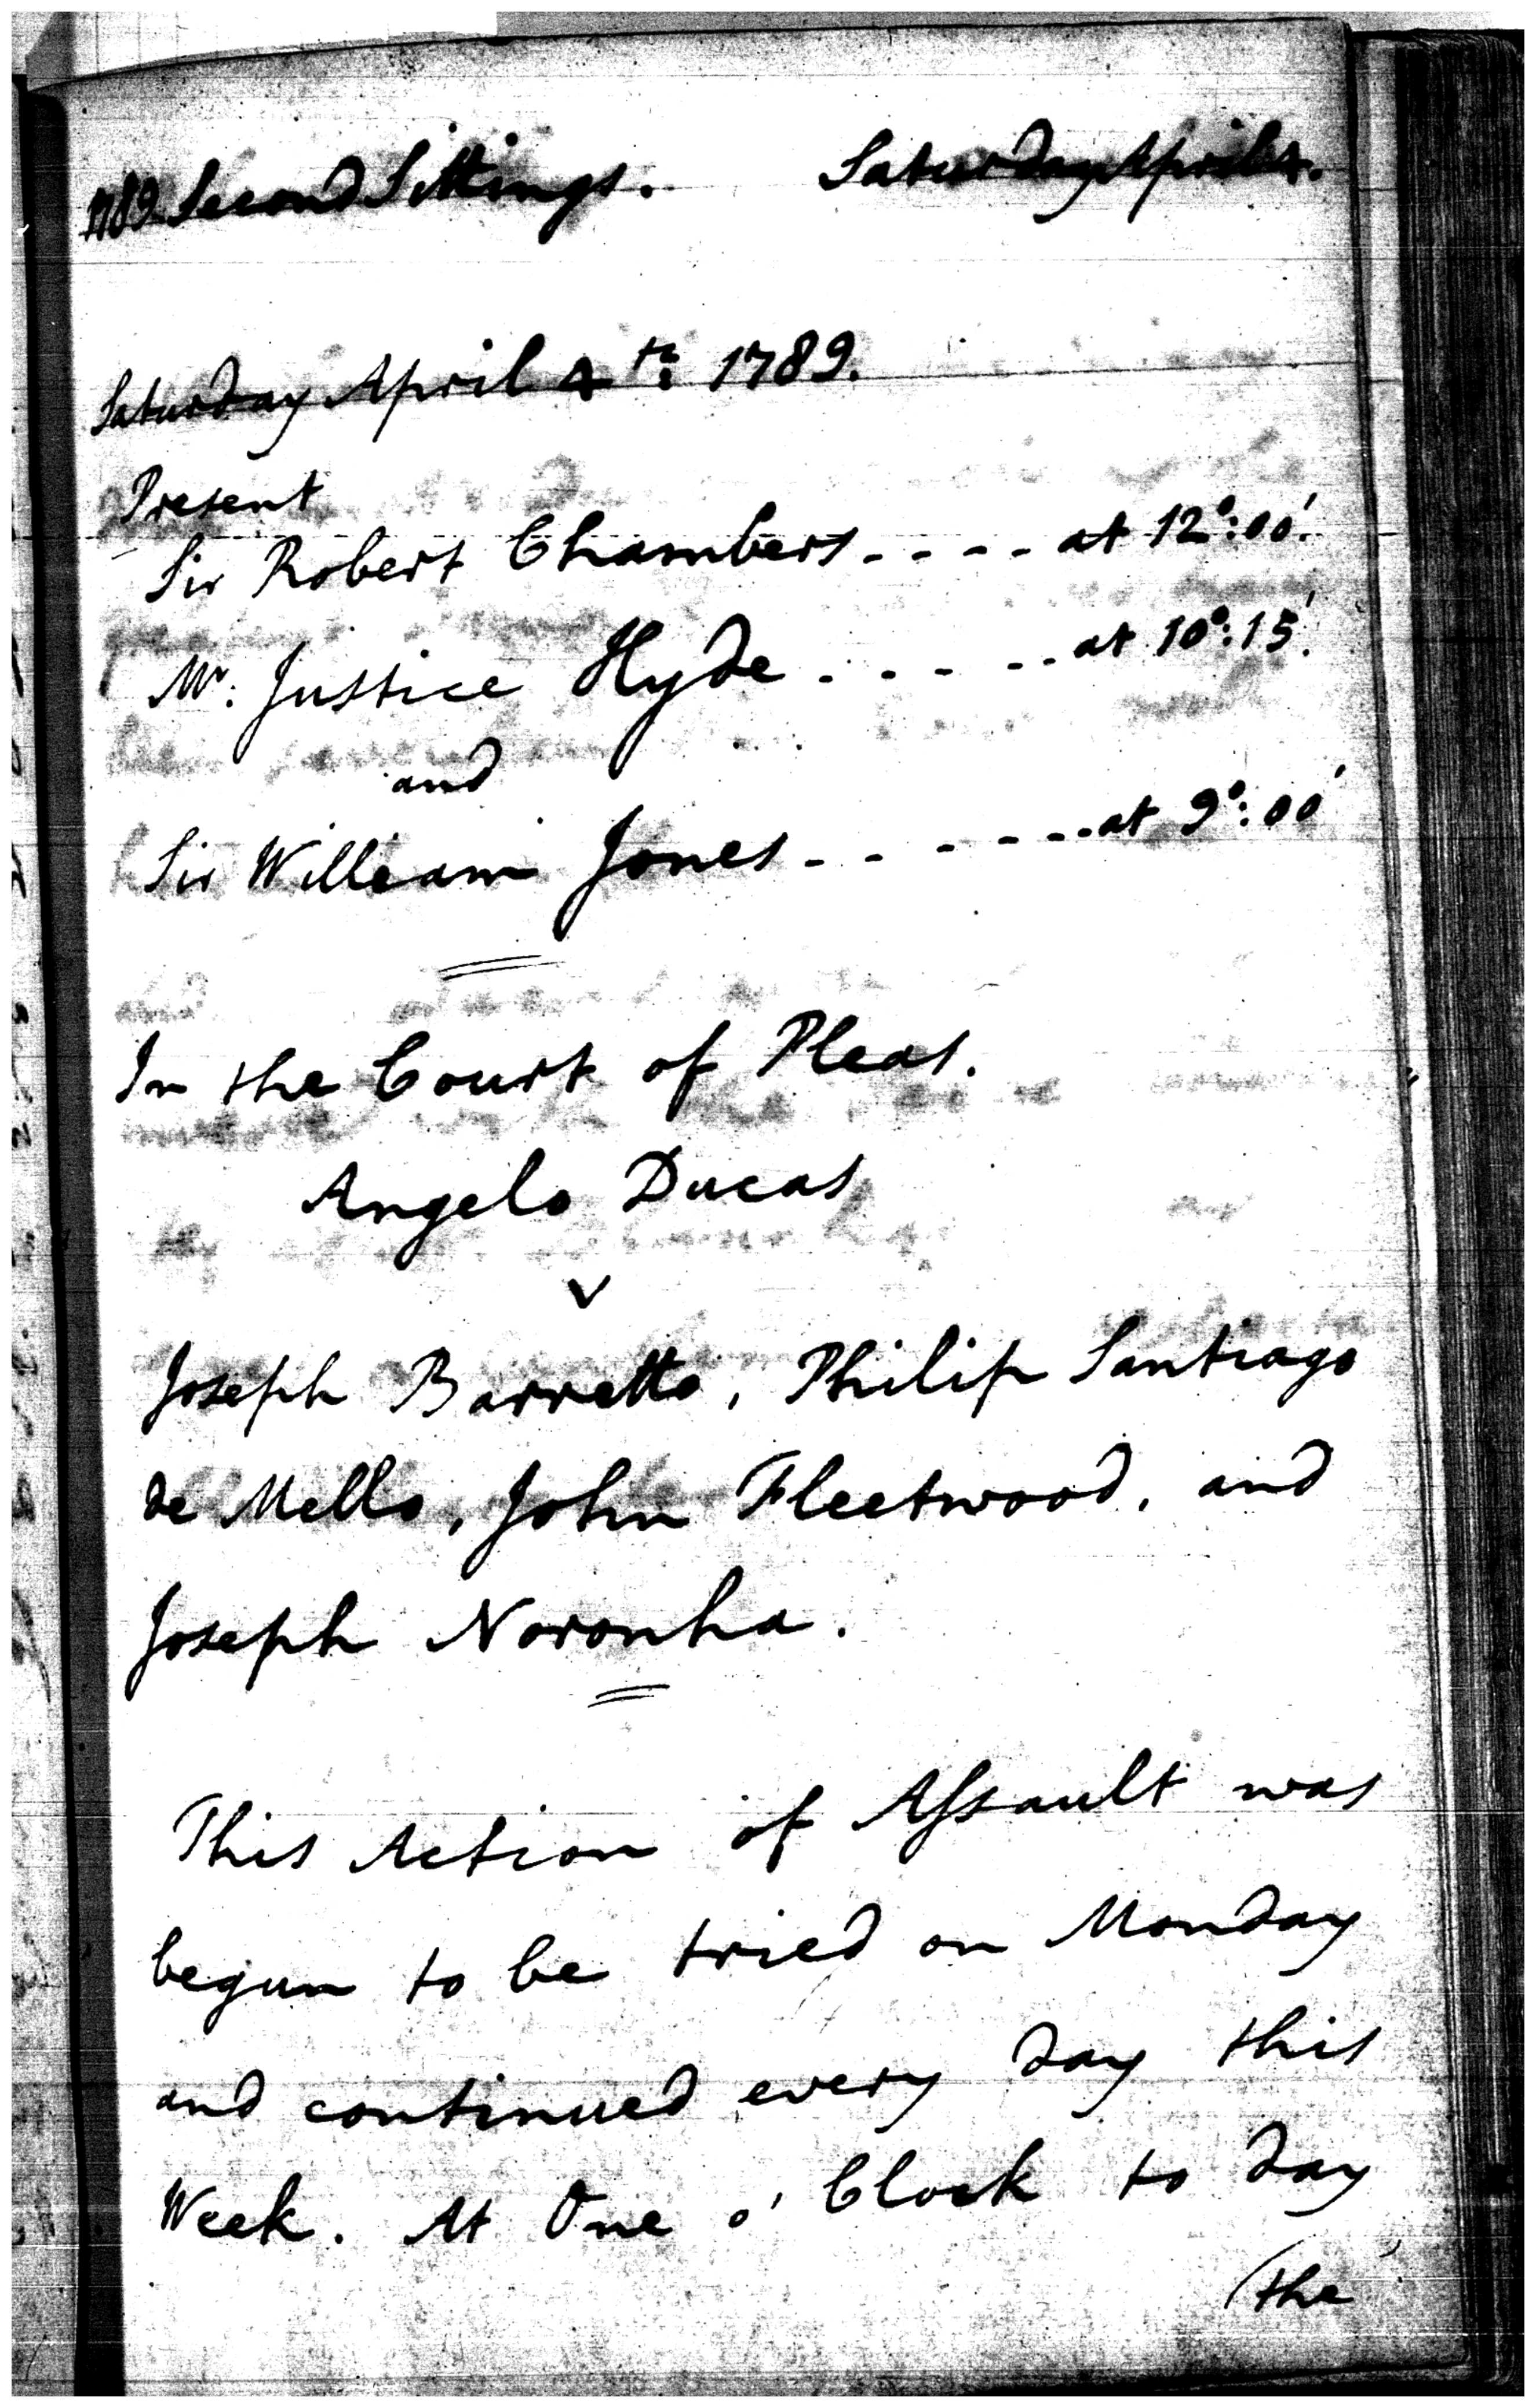 1789. Second Sittings. Saturday April 4.
Saturday April 4th: 1789.
Present
Sir Robert Chambers - - - - at 12°:00'.
Mr: Justice Hyde - - - - - - at 10°:15'.
and
Sir William Jones - - - - - - - at 9°:00'
In the Court of Pleas.
Angelo Ducas
v
Joseph Barretto, Philip Santiago
de Mello, John Fleetwood, and
Joseph Noronha.
This Action of Assault was
begun to be tried on Monday
and continued every day this
Week. At One o' Clock to day
(the